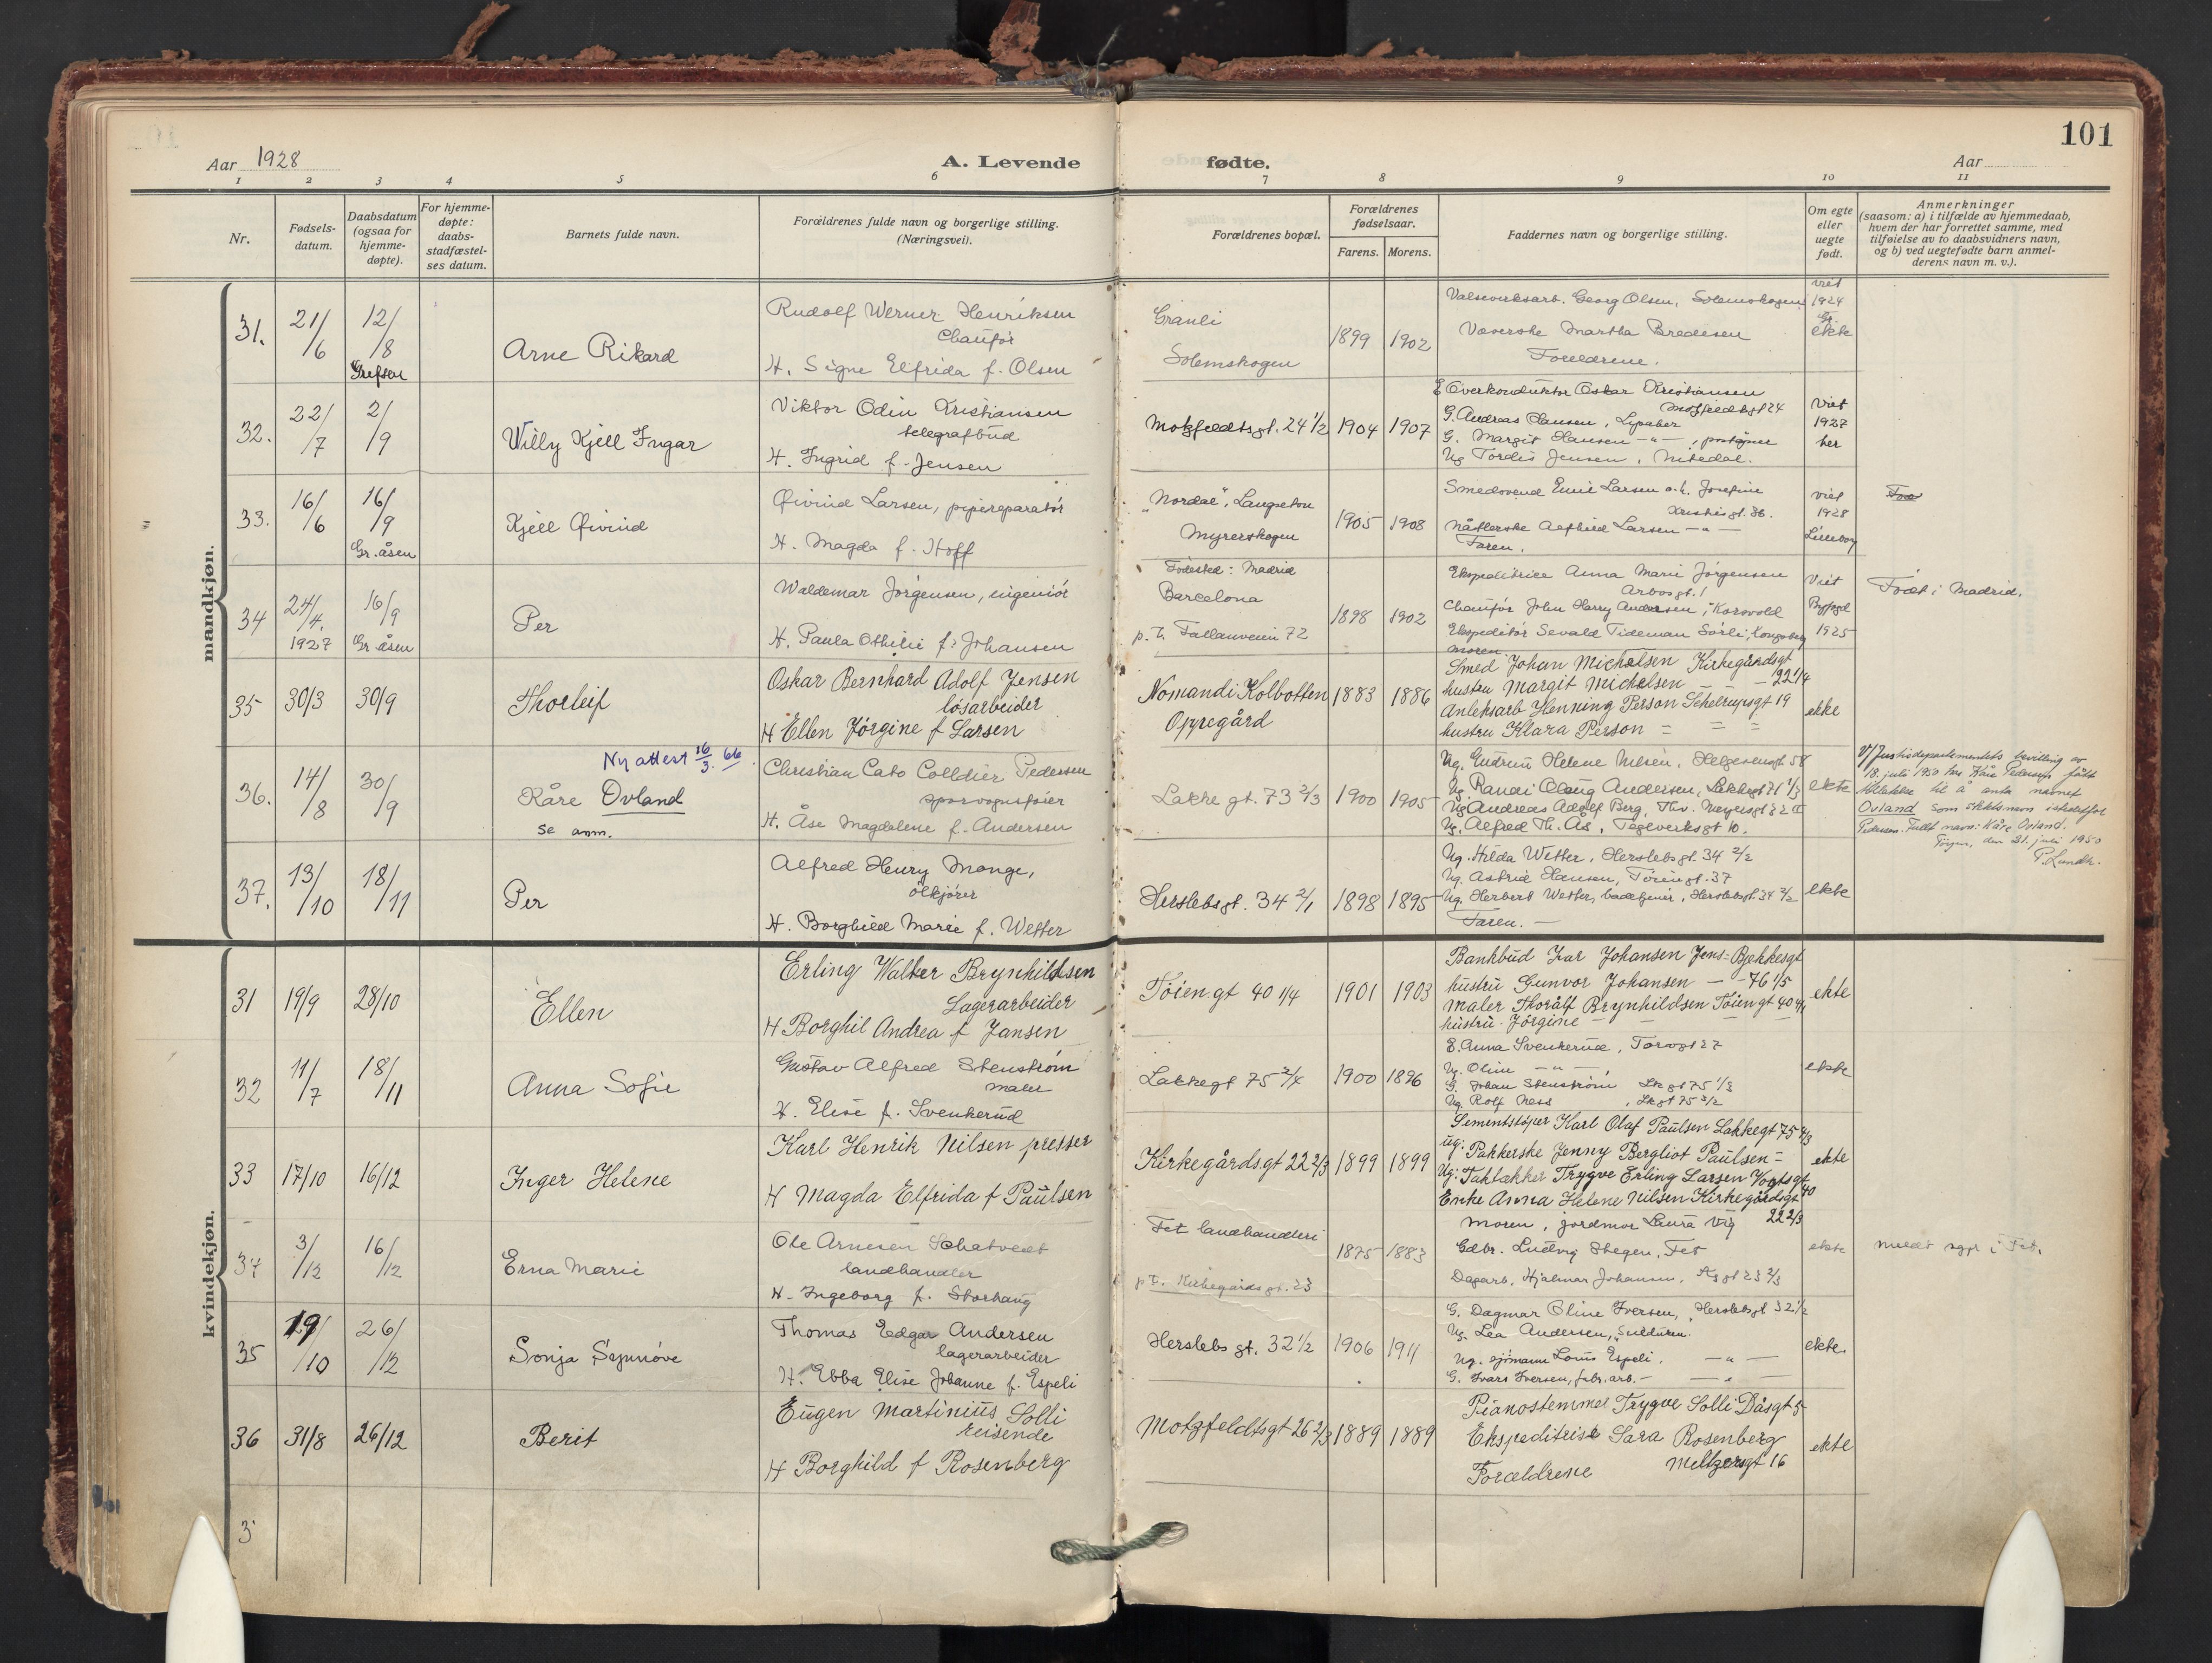 101
Aar 1928
A. Levende fødte.
Aar
1 2 3 4 5 6 7 8 9 10 11
Nr.
Fødsels-
datum.
Daabsdatum
(ogsaa for
hjemme-
døpte).
For hjemme-
døpte:
daabs-
stadfæstel-
ses datum.
Barnets fulde navn.
Forældrenes fulde navn og borgerlige stilling.
(Næringsvei).
Forældrenes bopæl.
Forældrenes
fødselsaar.
Farens. Morens.
Faddernes navn og borgerlige stilling.
Om egte
eller
uegte
født.
Anmerkninger
(saasom: a) i tilfælde av hjemmedaab,
hvem der har forrettet samme, med
tilføielse av to daabsvidners navn,
og b) ved uegtefødte barn anmel-
derens navn m. v.).
mandkjøn.
31. 21/6 12/8 Grefsen
Arne Rikard
Rudolf Werner Henriksen
Chauför
H. Signe Elfrida f. Olsen
Granli
Solemskogen
1899 1902
Valseverksarb. Georg Olsen, Solemskogen
Væverske Martha Bredesen
Foreldrene.
viet
1924
Gr.
ekte
32. 22/7 2/9
Willy Kjell Ingar
Viktor Odin Kristiansen
telegrafbud
H. Ingrid f. Jensen
Motzfeldtsgt. 24 1/2
1904 1907
E Overkonduktör Oskar Kristiansen
Motzfeldtsgt 24
G. Andreas Hansen,
G. Margit Hansen - " -,
Ug Tordis Jensen, Nitedal.
Viet
1927
her
33. 16/6 16/9 Gr. åsen
Kjell Øivind
Øivind Larsen, pipereparatör
H. Magda f. Hoff
"Nordal", Langseten
Myrerskogen
1905 1908
Smedsvend Emil Larsen o.h. Josefine
Kristisgt. 36.
Alfhild Larsen - " -
Faren.
viet
1928
Lilleborg
34 24/4. 1927 16/9 Gr. åsen
Per
Waldemar Jörgensen, ingeniör
H. Paula Othilie f. Johansen
Fødested: Madrid
Barcelona
p. t. Fallanveien 72
1898 1902
Ekspeditrice Anna Marie Jörgensen
Arbosgt. 1
Chauför John Harry Andersen, Korsvold
Ekspeditör Sevald Tideman Sörli, Kongsberg
moren.
Viet
Bygdøy
1925
Födt i Madrid.
35 30/3 30/9
Thorleif
Oskar Bernhard Adolf Jensen
løsarbeider
H Ellen Jørgine f Larsen
Nomandi Kolbotten
Oppegård
1883 1886
Smed Johan Michelsen Kirkegårdsgt
hustru Margit Michelsen - - 22 1/4
Anleksarb Henning Person Schelrupsgt 19
hustru Klara Person = = =
ekte
36. 14/8 30/9
Ny attest 16/3. 66.
Kåre Ovland
se anm.
Christian Cato Colldier Pedersen
sporvognsfører
H. Åse Magdalene f. Andersen
Lakke gt. 73 2/3
1900 1905
Ug. Gudrun Helene Nilsen, Helgesensgt 58
Ug Randi Olaug Andersen, Lakkegt 71 1/3
Ug Andreas Adolf Berg, Thv. Meyersgt 32 II
Ug. Alfred Th. Ås, Teglverksgt 10.
ekte
V/Justisdepartementets bevilling av
18. juli 1950 har Kåre Pedersen fått
tillatelse til å anta navnet
Ovland som slektsnavn istedetfor
Pedersen. Fullt navn: Kåre Ovland.
Tøyen, den 31. juli 1950
P. Lundh.
37. 13/10 18/11
Per
Alfred Henry Monge,
ölkjörer
H. Borghild Marie f. Wetter
Herslebsgt. 34 2/1
1898 1895
Ug. Hilda Wetter, Herslebsgt. 34 2/2
Ug. Astrid Hansen, Töiengt. 37
Ug. Herbert Wetter, badebetjener, Herslebsgt. 34 2/2
Faren. -
ekte
kvindekjøn.
31 19/9 28/10
Ellen
Erling Walter Brynhildsen
Lagerarbeider
H Borghil Andrea f Jansen
Töien gt 40 1/4
1901 1903
Bankbud Ivar Johansen Jens-Bjelkesgt
hustru Gunvor Johansen - - 76 1/5
Maler Thoralf Brynhildsen Töiengt 40 4/1
hustru Jørgine - - -
ekte
32 11/7 18/11
Anna Sofie
Gustav Alfred Stenström
maler
H. Elise f. Svenkerud
Lakkegt 75 2/4
1900 1896
E. Anna Svenkerud, Torvgt 27
Ug. Oline - " -
G. Johan Stenström, Lk gt 75 1/3
Ug. Rolf Ness, Lk gt 75 3/2
ekte
33 17/10 16/12
Inger Helene
Karl Henrik Nilsen presser
H Magda Elfrida f Paulsen
Kirkegårdsgt 22 2/3
1899 1899
Sementstøper Karl Olaf Paulsen Lakkegt 75 4/3
ug: Pakkerske Jenny Bergliot Paulsen =
Ug: Taktækker Trygve Erling Larsen Vogtsgt 40
Enke Anna Helene Nilsen Kirkegårdsgt
22 2/3
ekte
34 3/12 16/12
Erna Marie
Ole Arnesen Schatvedt
landhandler
H. Ingeborg f. Storhaug
Fet landhandleri
p t. Kirkegårdsgt. 23
1875 1883
Moren, jordmor Laura Vig
Gdbr. Ludvig Stegen, Fet
Dagarb. Hjalmar Johansen, Kg gt 23 2/3
ekte
meldt i Fet.
35 19/10 26/12
Sonja Synnöve
Thomas Edgar Andersen
lagerarbeider
H. Ebba Elise Johanne f. Espeli
Herslebs gt. 32 1/2
1906 1911
G. Dagmar Oline Iversen, Herslebsgt 32 1/2
Ug. Lea Andersen,
Ug. sjömann Louis Espeli. - " -
G. Ivars Iversen, fabr. arb. - - " -
ekte.
36 31/8 26/12
Berit
Eugen Martinius Solli
reisende
H Borghild f Rosenberg
Motzfeldtsgt 26 2/3
1889 1889
Pianostemmer Trygve Solli Dåsgt 5
Ekspeditrise Sara Rosenberg
Meltzersgt 16
Forældrene
ekte
3